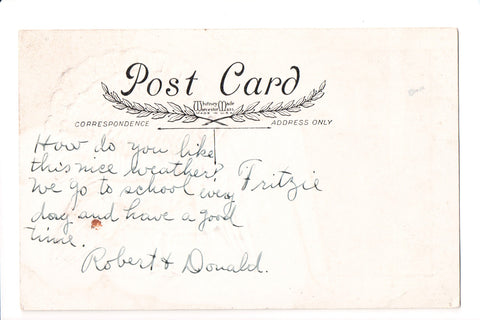 Post Card
Whitney Made
Worcester Mass.
MADE IN U.S.A.
CORRESPONDENCE
ADDRESS ONLY
How do you like
this nice weather?
We go to school every
day and have a good
time.
Robert & Donald.
Fritzie